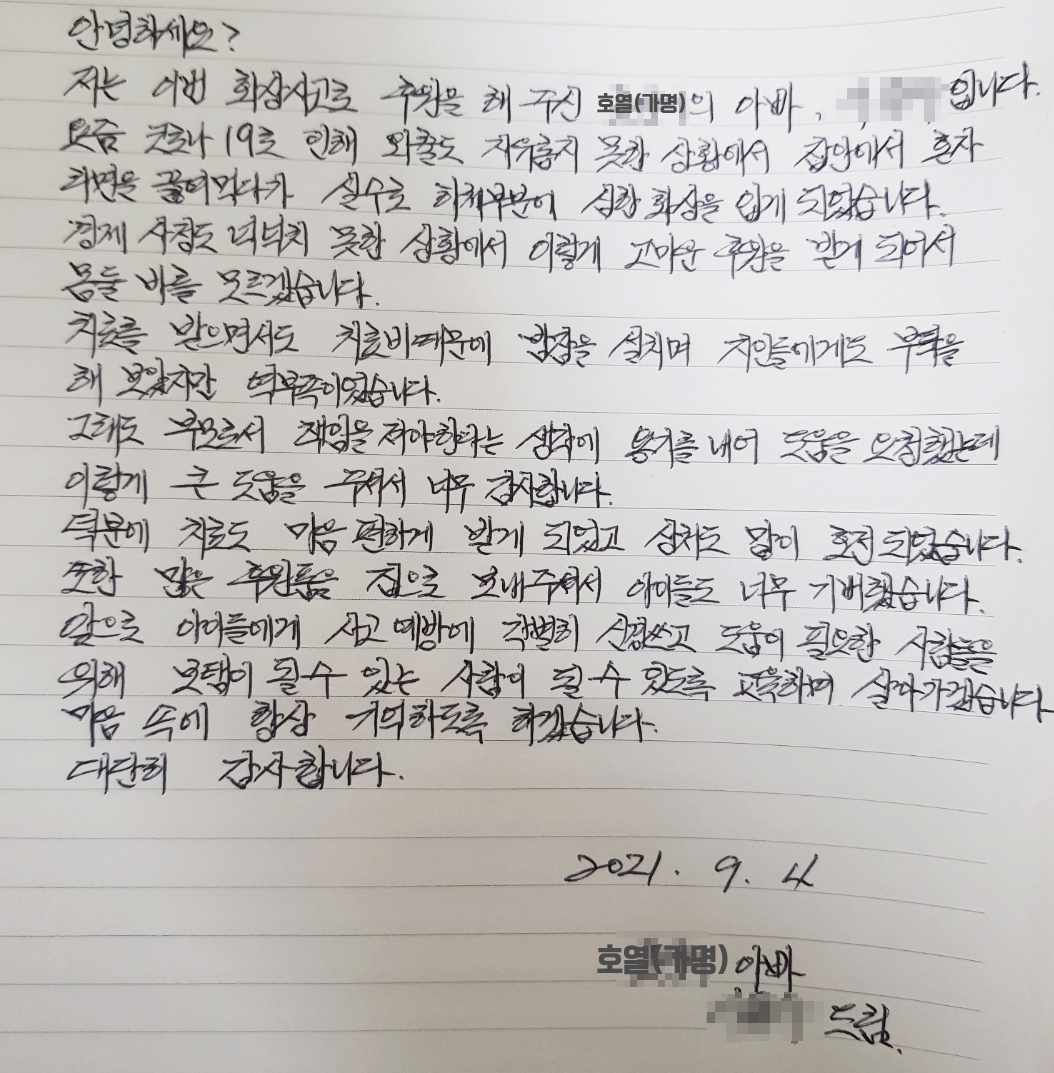 안녕하세요?
저는 이번 화상사고로 후원을 해 주신 호열(가명)의 아빠, 입니다.
요즘 코로나 19로 인해 외출도 자유롭지 못한 상황에서 집안에서 혼자
라면을 끓여먹다가 실수로 하체부분에 심한 화상을 입게 되었습니다.
경제 사정도 넉넉치 못한 상황에서 이렇게 고마운 후원을 받게 되어서
몸둘 바를 모르겠습니다.
치료를 받으면서도 치료비때문에 밤잠을 설치며 지인들에게도 부탁을
해 보았지만 역부족이었습니다.
그래도 부모로서 책임을 져야한다는 생각에 용기를 내어 도움을 요청했는데
이렇게 큰 도움을 주셔서 너무 감사합니다.
덕분에 치료도 마음 편하게 받게 되었고 상처도 많이 호전 되었습니다.
또한 많은 후원품을 집으로 보내주셔서 아이들도 너무 기뻐했습니다.
앞으로 아이들에게 사고 예방에 각별히 신경쓰고 도움이 필요한 사람들을
위해 보탬이 될 수 있는 사람이 될 수 있도록 교육하며 살아가겠습니다
마음 속에 항상 기억하도록 하겠습니다.
대단히 감사합니다.
2021. 9. 4
호열(가명) 아빠
드림.